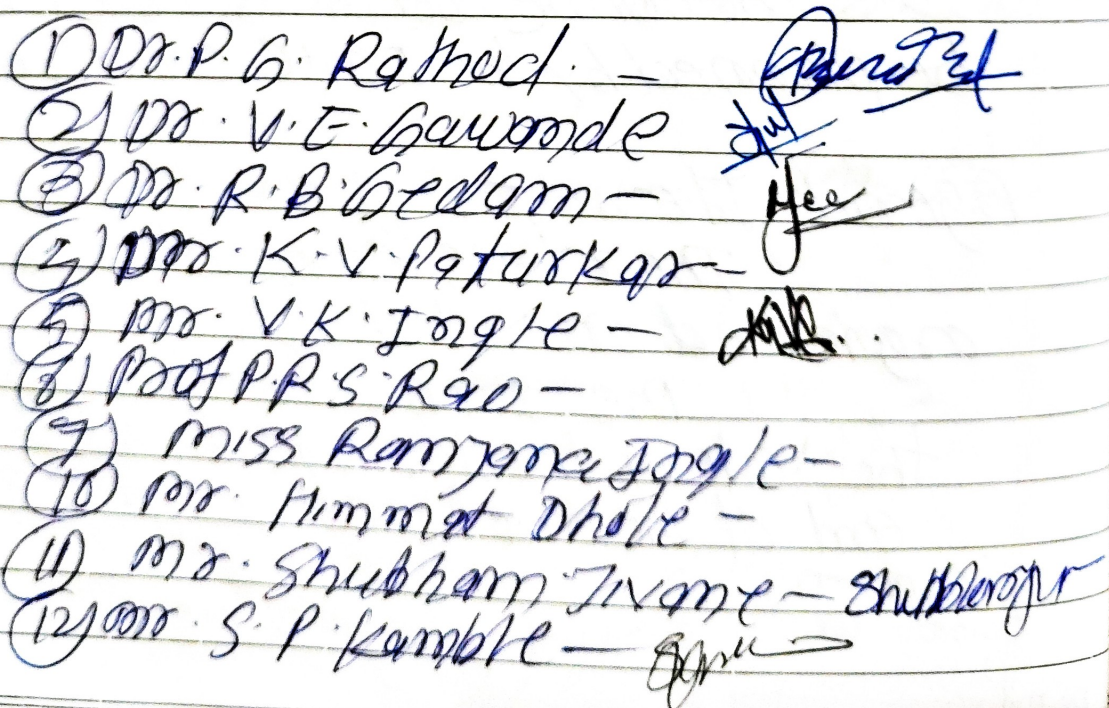 ① Dr. P. G. Rathod. -
② Dr. V. E. Gawande
③ Dr. R. B. Gedam -
④ Mr. K. V. Paturkar -
⑤ Mr. V. K. Ingle -
⑥ Prof P. R. S. Rao -
⑦ Miss Ranjana Ingle -
⑩ Mr. Himmat Dhole -
⑪ Mr. Shubham Jivane -
⑫ Mr. S. P. Kamble -